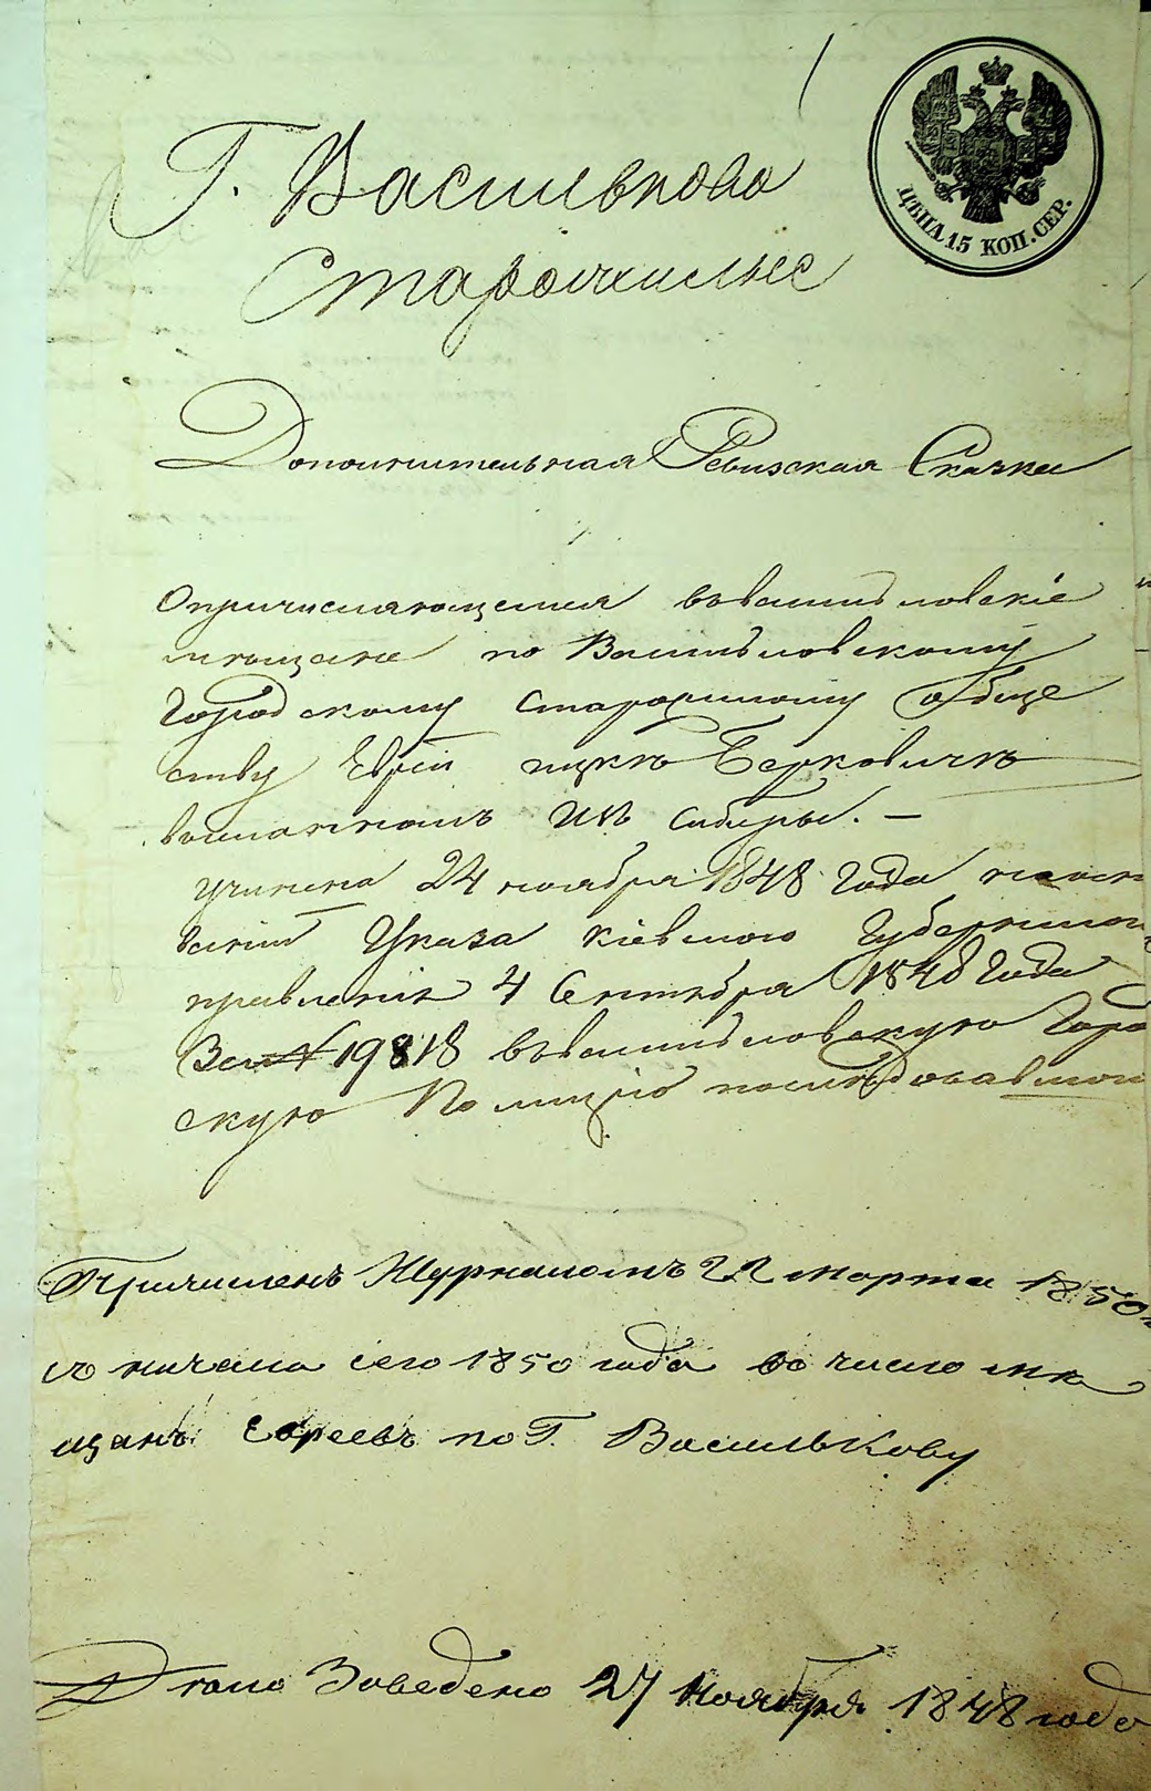 ЦѢНА 15 КОП. СЕР.
Г. Василькова
Старожилые
Дополнительная Ревизская Сказка
О причисляющемся въ васильковскіе
мещане по Васильковскому
Городскому старожилому обще
ству Еврѣи Ицкѣ Берковичѣ
Изъ Сибиры. —
учинена 24 ноября 1848 года на осн
ваніи Указа Кіевского Губернского
правленія 4 Сентября 1848 года
За № 19818 въ васильковскую Горо
скую Полицію последовавшего
Причисленъ Журналомъ 22 марта 1850
съ начала сего 1850 года во число мѣ
щанъ Евреевъ по Г. Василькову
Дѣло Заведено 27 Ноября 1848 года